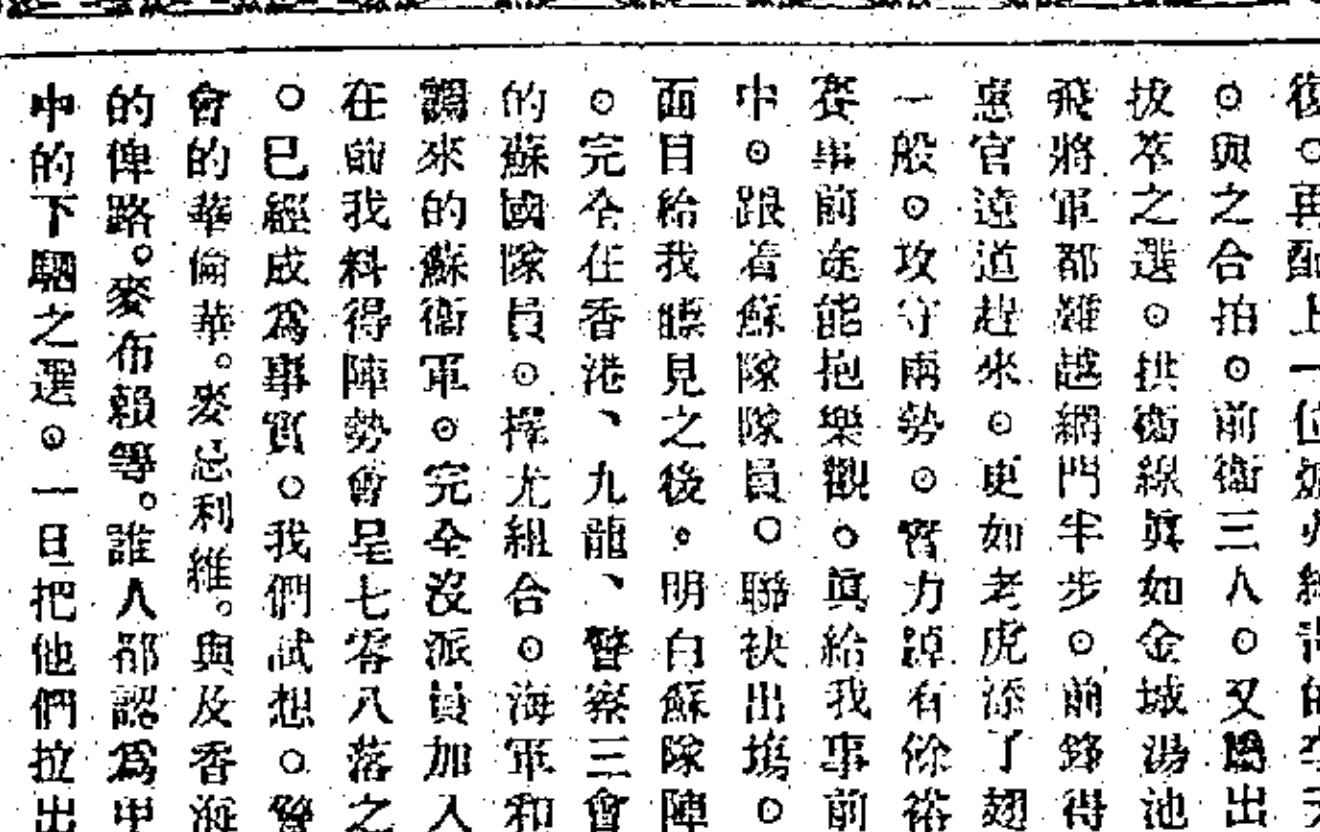 復○再配上一位
⊙與之合拍⊙前衛三人⊙又關出
拔萃之選⊙拱衛線眞如金城湯池
飛將軍都難越網門半步⊙前鋒得
惠官遠道赶來⊙更如老虎添了翅
一般⊙攻守兩勢⊙實力綽有餘裕
賽事前途能抱樂觀○眞給我事前
中⊙跟着蘇隊隊員○聯袂出塲○
面目給我瞟見之後。明白蘇隊陣
⊙完全在香港、九龍、警察三會
的蘇國隊員⊙擇尤組合⊙海軍和
調來的蘇衞軍⊙完全沒派員加入
在前我料得陣勢會呈七零八落之
○已經成爲事實○我們試想○警
會的華倫華。麥忌利維。與及香海
的俾路。麥布賴等。誰人都認爲甲
中的下駟之選⊙一旦把他們拉出